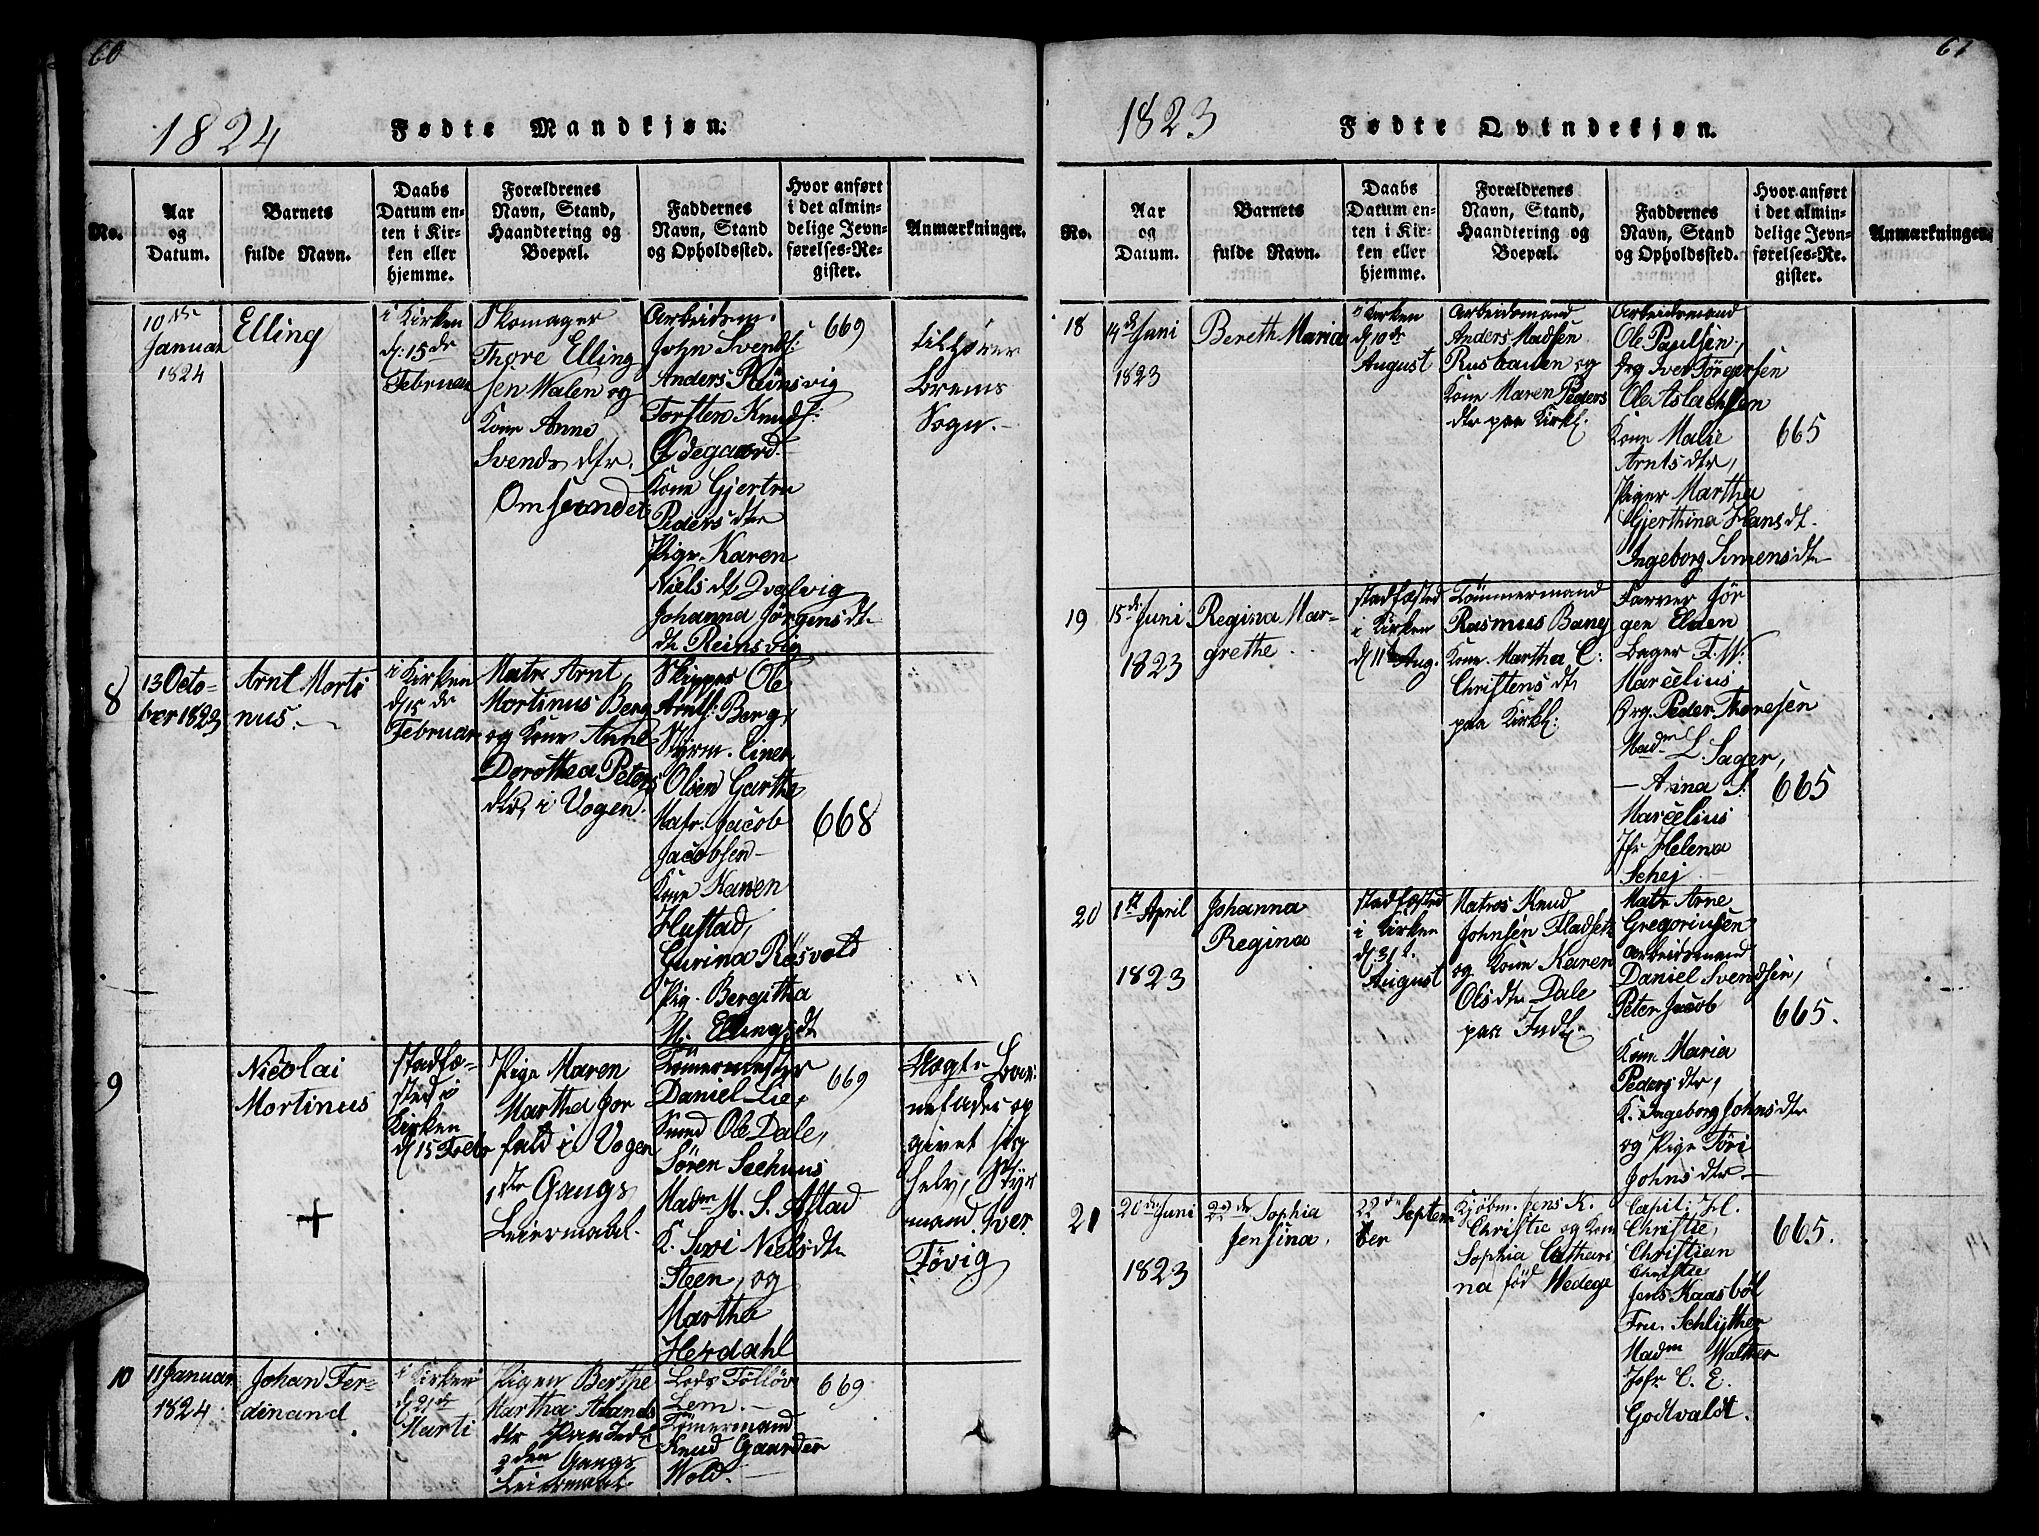 60
1824
Fødte Mandkjøn.
No.
Aar
og
Datum.
Barnets
fulde Navn.
Daabs
Datum en-
ten i Kir-
ken eller
hjemme.
Forældrenes
Navn, Stand,
Haandtering og
Boepæl.
Faddernes
Navn, Stand
og Opholdssted.
Hvor anført
i det almin-
delige Jevn-
førelses-Re-
gister.
Anmærkninger.
10de
Januar
1824
Elling
i Kirken
d: 15de
Februar
Skomager
Thore Elling
sen Walen og
Kone Anne
Svends dtr.
Omsundet
Arbeidsm.
John Svends:
Anders Reinsvig
Torsten Knuds:
Ødegaard
Kone Gjertru
Peders dtr
Pige Karen
Niels dt
Johanna Jørgens dtr
Reinsvig
669
tilhører
Brems
Sogn.
8
13 Octo-
ber 1823
Arnt Morti
nus.
i Kirken
d 15 de
Februar
Matr. Arnt
Mortinus Berg
og Kone Anne
Dorothea Peters
dtr, i Vogen.
Skipper Ole
Arnts: Berg,
Styrm. Einer
Olsen Garthe
Matr. Jacob
Jacobsen
Kone Karen
Hustad,
Gurina Røsvold
Pig. Bergitha
M. Ellings dt
668
9
Nicolai
Mortinus
+
stadfæ-
sted i
Kirken
d 15 Febr
Pige Maren
Martha For
fald i Vogen
1ste Gangs
Leiermaal.
Tømermester
Daniel Lie,
Smed Ole Dale,
Søren Seehuus
Madm M. S. Astad
K. Siri Niels dtr
Steen, og
Martha
Herdahl
669
Uægte Bar-
nefader op
givet sig
selv, Styr
mand Iver
Tøvig
10
11 Januar
1824.
Johan Fer-
dinand
i Kirken
d 21 de
Marti
Pigen Berthe
Martha Amunds
dtr Paa Indl
2den Gangs
Leiermaal
Lods Tølløv
Lem.
Tømermand
Knud Gaarder
Wold.
669
61
1823
Fødte Qvindekjøn.
No.
Aar
og
Datum.
Barnets
fulde Navn.
Daabs
Datum en-
ten i Kir-
ken eller
hjemme.
Forældrenes
Navn, Stand,
Haandtering og
Boepæl.
Faddernes
Navn, Stand
og Opholdssted.
Hvor anført
i det almin-
delige Jevn-
førelses-Re-
gister.
Anmærkninger.
18
14de Juni
1823
Bereth Maria
i Kirken
d 10 de
August
Arbeidsmand
Anders Madsen
Rusbauen og
Kone Maren Peders
dtr paa Kirkl.
Arbeidsmand
Ole Paulsen,
Drg Iver Torgersen
Ole Aslachsen
Kone Malie
Arnts dtr,
Piger Martha
Gjerthina Hans dt.
Ingeborg Simens dtr
665
19
15de Juni
1823
Regina Mar-
grethe
stadfæsted
i Kirken
d 11 Aug.
Tømmermand
Rasmus Bang
Kone Martha C:
Christens dtr
paa Kirkl:
Farver Jør
gen Elven
Bager F. W.
Marcelius
Drg. Peder Thoresen
Madm L Sager,
— Anna S.
Marcelius
Jfr Helena
Schej
665
20
1st April
1823
Johanna
Regina
stadfæsted
i Kirken
d. 31t
August
Matros Knud
Johnsen Fladset
og Kone Karen
Ols dtr Dale
paa Indl.
Matr Arne
Gregoriusen
arbeidsmand
Daniel Svendsen,
Peter Jacob
Kone Maria
Peders dtr,
K. Ingeborg Johns dtr
og Pige Tøri
Johns dtr
665.
21
20de Juni
1823
Sophia
Jensina.
22de Septem
ber
Kjøbm. Jens K.
Christie og Kone
Sophia Cathari
na fød Wedege
Capit: H.
Christie,
Christian
Christie
Jens Kaasbøl
Fru Schlytter
Madm Walther
Jofr. C. E.
Godtvaldt.
665.